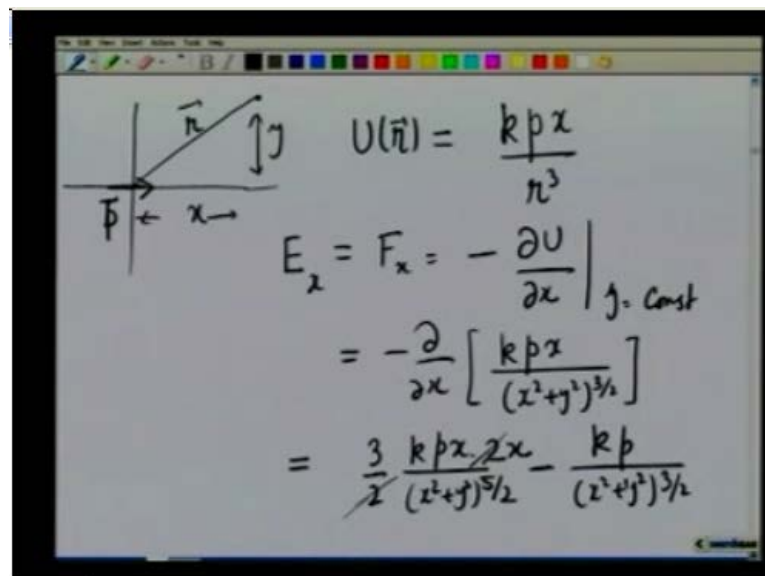 File Edit View Insert Actions Tools Help
B I
r⃗ y U(r⃗) = kpx / r³
p⃗ ← x →
Eₓ = Fₓ = - ∂U/∂x | y = Const
= - ∂/∂x [ kpx / (x²+y²)^3/2 ]
= 3/2 kpx · 2x / (x²+y²)^5/2 - kp / (x²+y²)^3/2